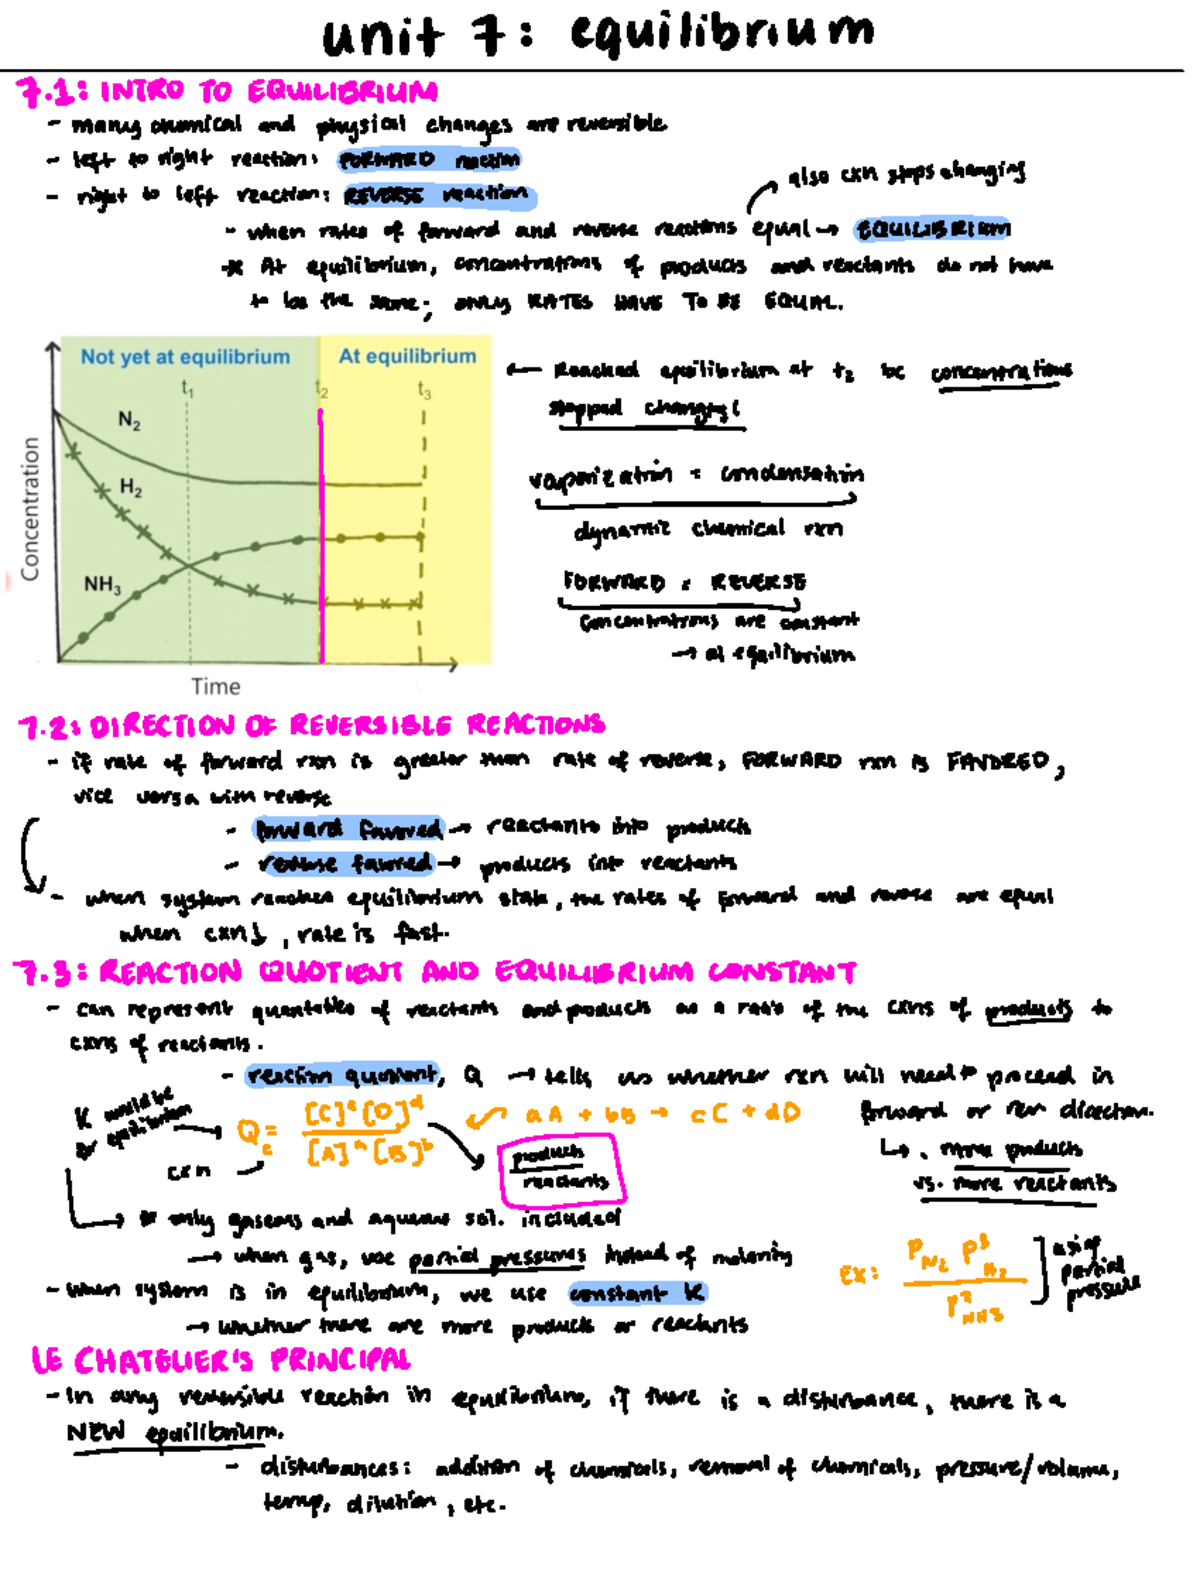 unit 7: equilibrium
7.1: INTRO TO EQUILIBRIUM
- many chemical and physical changes are reversible
- left to right reaction: FORWARD reaction
also cxn stops changing
- right to left reaction: REVERSE reaction
- when rates of forward and reverse reactions equal → EQUILIBRIUM
* At equilibrium, concentrations of products and reactants do not have
to be the same; ONLY RATES HAVE TO BE EQUAL.
Not yet at equilibrium
At equilibrium
t₁
t₂
t₃
N₂
H₂
NH₃
Concentration
Time
← Reached equilibrium at t₂ bc concentrations
stopped changing!
vaporization = condensation
dynamic chemical rxn
FORWARD = REVERSE
concentrations are constant
→ at equilibrium
7.2: DIRECTION OF REVERSIBLE REACTIONS
- if rate of forward rxn is greater than rate of reverse, FORWARD rxn is FAVORED,
vice versa with reverse
- forward favored → reactants into products
- reverse favored → products into reactants
- when system reaches equilibrium state, the rates of forward and reverse are equal
when cxn↓, rate is fast.
7.3: REACTION QUOTIENT AND EQUILIBRIUM CONSTANT
- can represent quantities of reactants and products as a ratio of the cxns of products to
cxns of reactants.
- reaction quotient, Q → tells us whether rxn will need to proceed in
forward or rev direction.
↳ . more products
vs. more reactants
K would be
for equilibrium
Qc = [C]ᶜ[D]ᵈ / [A]ᵃ[B]ᵇ
← aA + bB → cC + dD
cxn
products
reactants
→ * only gaseous and aqueous sol. included
→ when gas, use partial pressures instead of molarity
EX: P_N₂ P³_H₂ / P²_NH₃
using
partial
pressure
- When system is in equilibrium, we use constant K
→ whether there are more products or reactants
LE CHATELIER'S PRINCIPAL
- In any reversible reaction in equilibrium, if there is a disturbance, there is a
NEW equilibrium.
- disturbances: addition of chemicals, removal of chemicals, pressure/volume,
temp, dilution, etc.